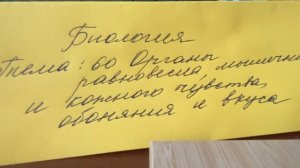 Биология
Тема: 60 Органы
равновесия мышечн
и кожного чувства,
обоняния и вкуса